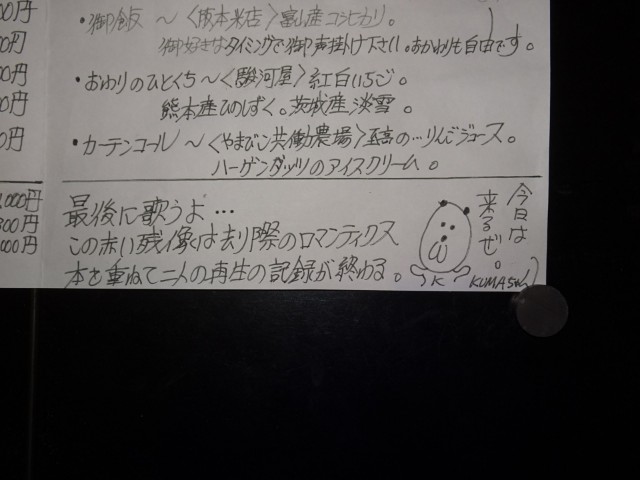 00円
・御飯 〜〈坂本米店〉富山産コシヒカリ。
御好きなタイミングで御声掛け下さい。おかわりも自由です。
・おわりのひとくち〜〈駿河屋〉紅白いちご。
熊本産ひのしずく。茨城産淡雪。
・カーテンコール 〜〈やまびこ共働農場〉至高の…りんごジュース。
ハーゲンダッツのアイスクリーム。
,000円
300円
000円
最後に歌うよ…
この赤い残像は去り際のロマンティクス
本を重ねて二人の再生の記録が終わる。
今日は
来るぜ。
K